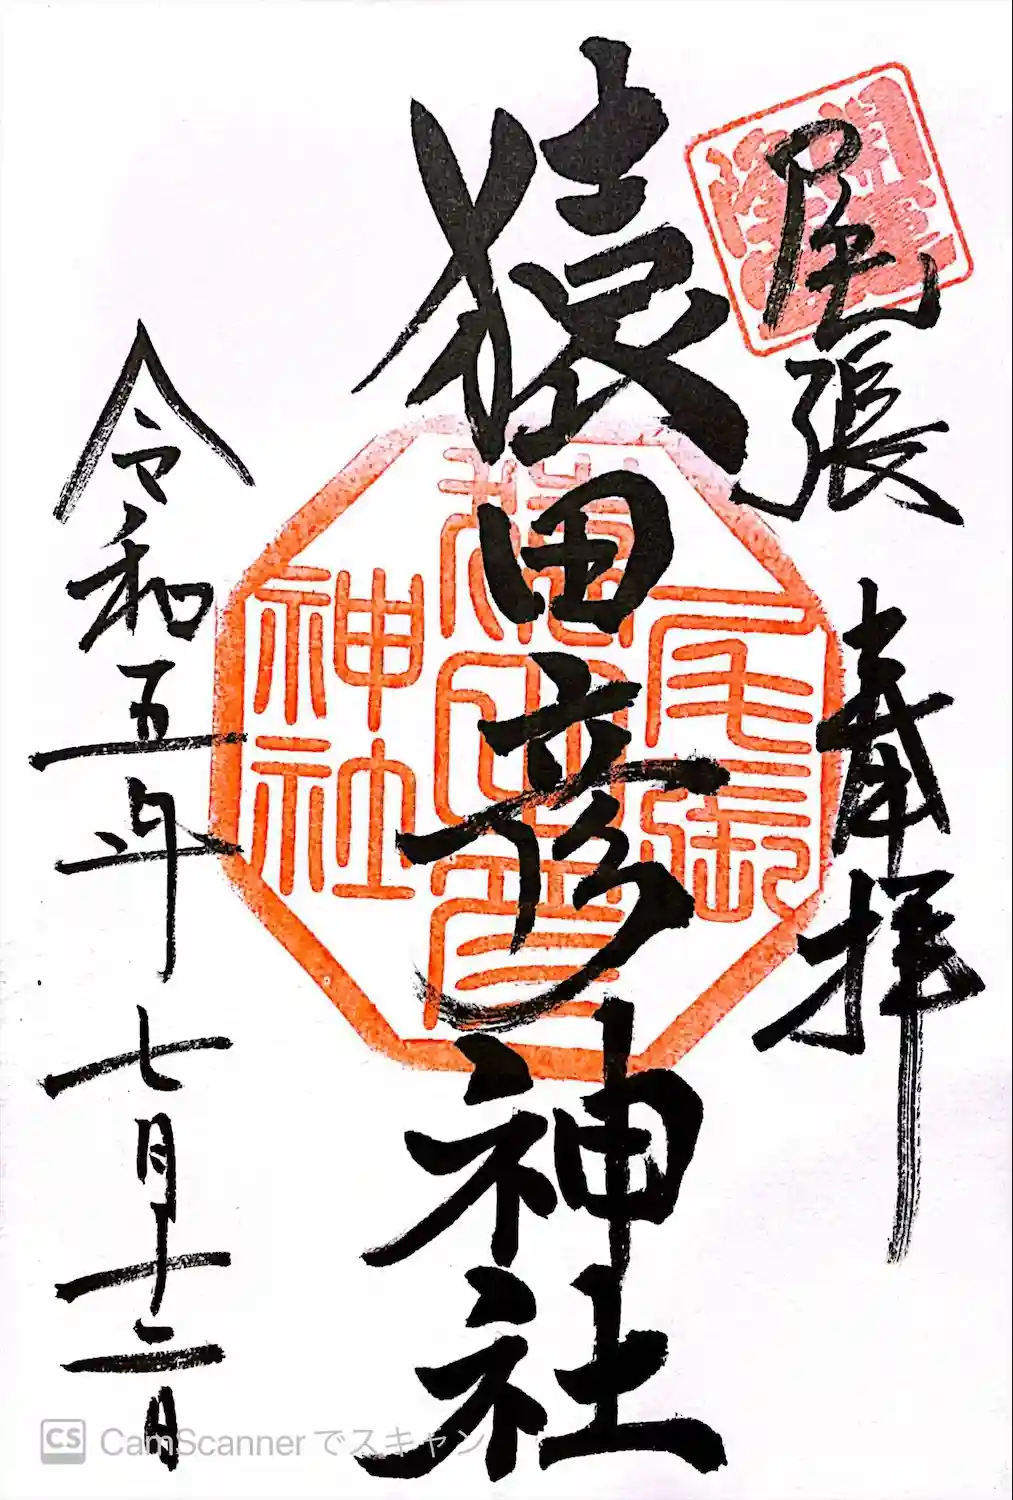 尾張
奉拝
猿田彦神社
令和五年七月十二日
尾張
猿田彦
神社
CS CamScannerでスキャン